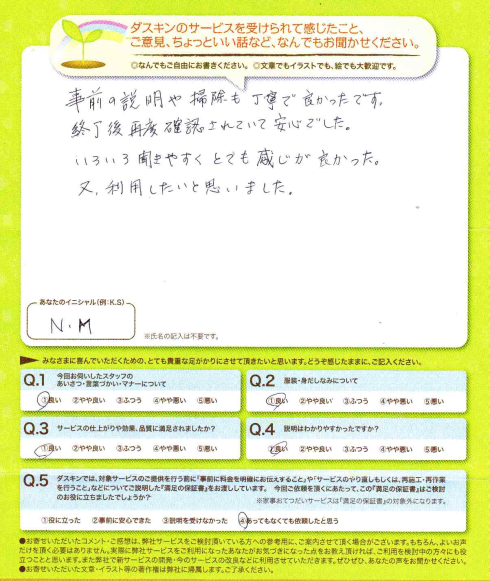 ダスキンのサービスを受けられて感じたこと、
ご意見、ちょっといい話など、なんでもお聞かせください。
◎なんでもご自由にお書きください。 ◎文章でもイラストでも、絵でも大歓迎です。
事前の説明や掃除も丁寧で良かったです。
終了後再度確認されていて安心でした。
いろいろ聞きやすくとても感じが良かった。
又、利用したいと思いました。
あなたのイニシャル(例:K.S)
N・M
※氏名の記入は不要です。
みなさまに喜んでいただくための、とても貴重な足がかりにさせて頂きたいと思います。どうぞ感じたままに、ご記入ください。
Q.1 今回お伺いしたスタッフの
あいさつ・言葉づかい・マナーについて
①良い ②やや良い ③ふつう ④やや悪い ⑤悪い
Q.2 服装・身だしなみについて
①良い ②やや良い ③ふつう ④やや悪い ⑤悪い
Q.3 サービスの仕上がりや効果、品質に満足されましたか?
①良い ②やや良い ③ふつう ④やや悪い ⑤悪い
Q.4 説明はわかりやすかったですか?
①良い ②やや良い ③ふつう ④やや悪い ⑤悪い
Q.5 ダスキンでは、対象サービスのご提供を行う前に「事前に料金を明確にお伝えすること」や「サービスのやり直しもしくは、再施工・再作業
を行うこと」などについてご説明した『満足の保証書』をお渡ししています。 今回ご依頼を頂くにあたって、この『満足の保証書』はご検討
のお役に立ちましたでしょうか?
※家事おてつだいサービスは『満足の保証書』の対象外になります。
①役に立った ②事前に安心できた ③説明を受けなかった ④あってもなくても依頼したと思う
●お寄せいただいたコメント・ご感想は、弊社サービスをご検討頂いている方への参考用に、ご案内させて頂く場合がございます。もちろん、よいお声
だけを頂く必要はありません。実際に弊社サービスをご利用になったあなたがお気づきになった点をお教え頂ければ、ご利用を検討中の方々にも役
立つことと思います。また弊社で新サービスの開発・今のサービスの改良などに利用させていただきます。ぜひぜひ、あなたの声をお聞かせください。
●お寄せいただいた文章・イラスト等の著作権は弊社に帰属します。ご了承ください。